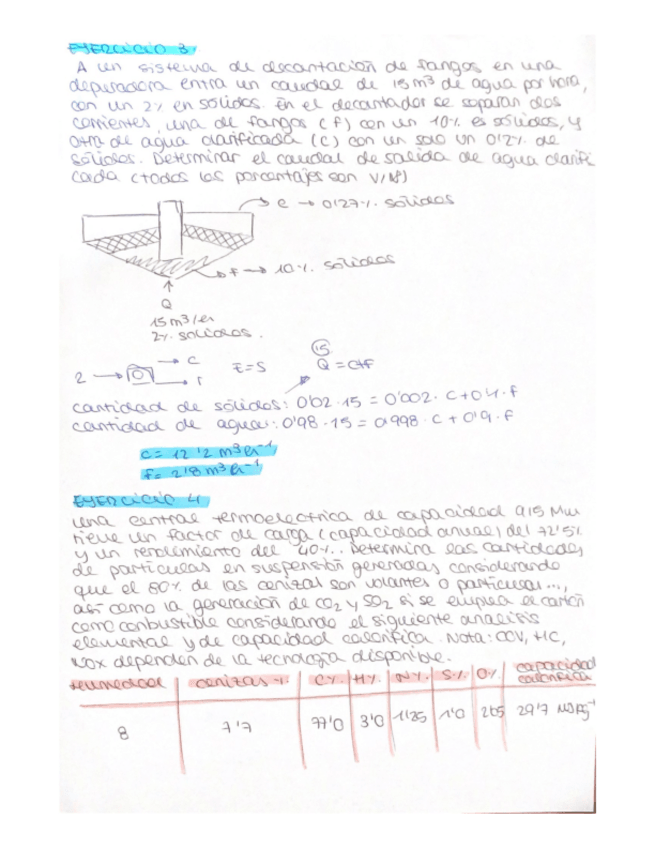 EJERCICIO 3
A un sistema de decantación de fangos en una
depuradora entra un caudal de 15 m³ de agua por hora,
con un 2% en sólidos. En el decantador se separan dos
corrientes, una de fangos (f) con un 10% es sólidos, y
otra de agua clarificada (c) con un solo un 0'2% de
sólidos. Determinar el caudal de salida de agua clarifi
cada (todos los porcentajes son V/V)
c → 0'2% sólidos
f → 10% sólidos
Q
15 m³/h
2% sólidos.
c
E=S
Q = C+f
15
cantidad de sólidos: 0'02 · 15 = 0'002 · c + 0'1 · f
cantidad de agua: 0'98 · 15 = 0'998 · c + 0'9 · f
c = 12'2 m³ h⁻¹
f = 2'8 m³ h⁻¹
EJERCICIO 4
Una central termoeléctrica de capacidad 915 Mw
tiene un factor de carga (capacidad anual) del 72'5%
y un rendimiento del 40%. Determina las cantidades
de partículas en suspensión generadas considerando
que el 80% de las cenizas son volantes o partículas...,
así como la generación de CO2 y SO2 si se emplea el carbón
como combustible considerando el siguiente análisis
elemental y de capacidad calorífica. Nota: COV, HC,
NOx dependen de la tecnología disponible.
Humedad cenizas % C% H% N% S% O% capacidad calorífica
8 7'7 77'0 3'0 1'25 1'0 2'05 29'7 MJ kg⁻¹